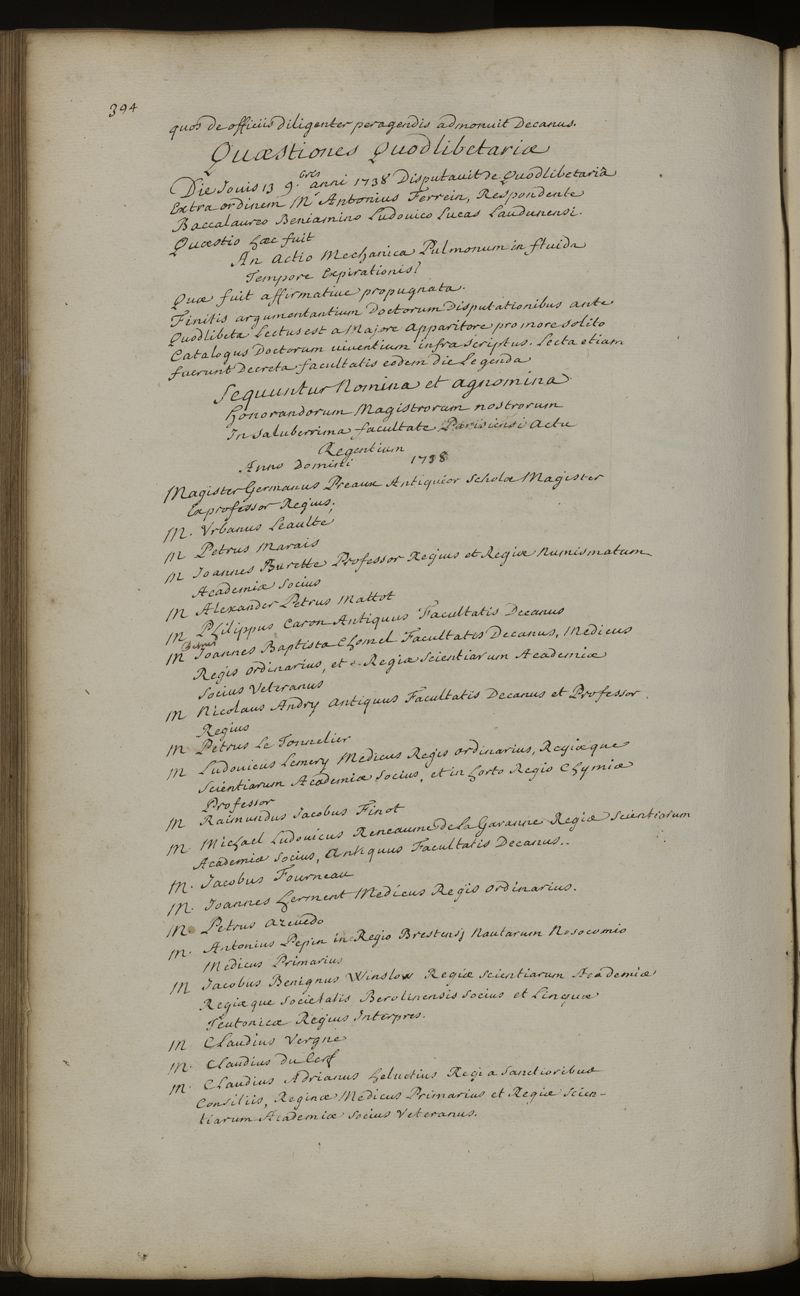 394
quos de officiis diligenter peragendis admonuit Decanus.
Quæstiones Quodlibetariæ
Die Jouis 13 9.bres anni 1738 Disputauit de Quodlibetariâ
Extra ordinem Mr Antonius Ferrein, Respondente
Baccalaureo Beniamino Ludouico Lucas Laudunensi.
Quæstio hæc fuit
An Actio Mechanica Pulmonum in fluida
Tempore Expirationis?
Quæ fuit affirmatiue propugnata.
Finitis argumentantium Doctorum Disputationibus ante
Quodlibeta Lectus est a Majore apparitore pro more solito
Catalogus Doctorum uiuentium infra scriptus. Lecta etiam
fuerunt Decreta facultatis eodem die Legenda
Sequuntur Nomina et agnomina
honorandorum Magistrorum nostrorum
In saluberrima facultate Parisiensi actu
Regentium
Anno Domini 1738
Magister Germanus Preaux Antiquior Scholæ Magister
Exprofessor Regius;
M. Vrbanus Leaulté
M Petrus Marais
M Joannes Burette Professor Regius et Regiæ Numismatum
Academiæ Socius
M Alexander Petrus Mattot
M Philippus Caron Antiquus Facultatis Decanus
M Joannes Baptista Chomel Facultatis Decanus, Medicus
Regis ordinarius, et Regiæ Scientiarum Academiæ
Socius Veteranus
M Nicolaus Andry antiquus Facultatis Decanus et Professor
Regius
M Petrus Le Tonnelier
M Ludouicus Lemery Medicus Regis ordinarius, Regiæque
Scientiarum Academiæ Socius, et in horto Regio Chymiæ
Professor
M Raimundus Jacobus Finot
M. Michael Ludouicus Reneaume de La Garanne Regiæ Scientiarum
Academiæ Socius, Antiquus Facultatis Decanus..
M. Jacobus Fourneau
M. Joannes herment Medicus Regis ordinarius.
M. Petrus azeuedo
M. Antonius Pepin in Regio Brestensj Nautarum Nosocomio
Medicus Primarius
M Jacobus Benignus Winslow Regiæ Scientiarum Academiæ
Regiæque Societatis Berolinensis Socius et Linguæ
Teutonicæ Regius Interpres.
M Claudius Vergne
M. Claudius Du Cerf
M. Claudius Adrianus heluetius Regi a Sanctioribus
Consiliis, Reginæ Medicus Primarius et Regiæ Scien-
tiarum Academiæ Socius Veteranus.